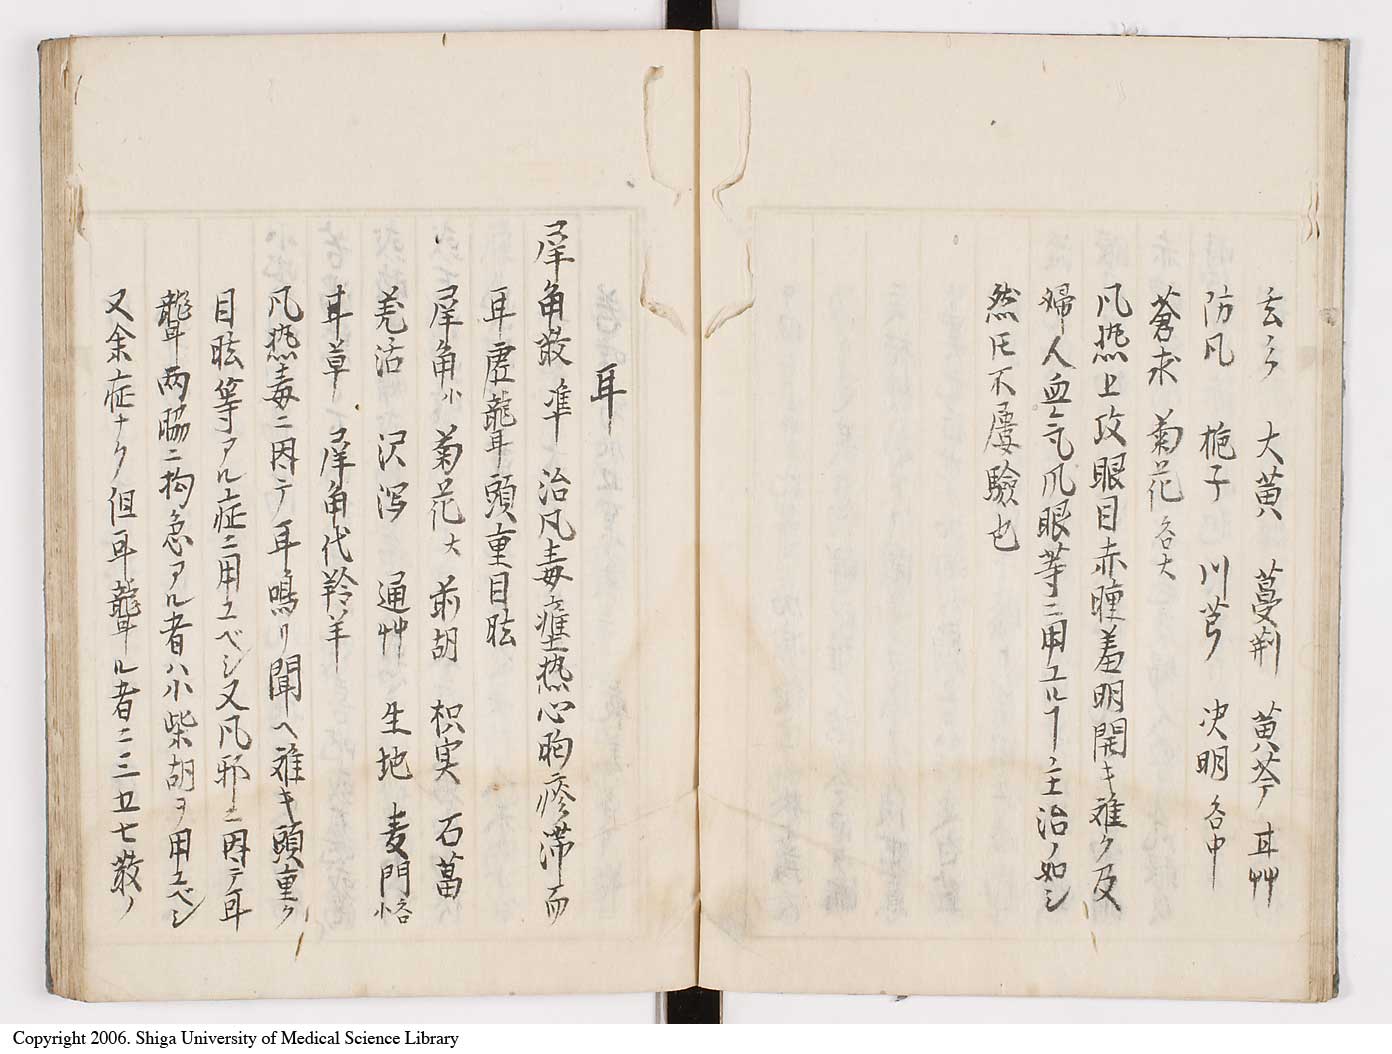 玄参 大黄 蔓荆 黄芩 耳艸
防凡 梔子 川芎 决明 各中
蒼朮 菊花 各大
凡热上攻眼目赤腫羞明開キ难ク及
婦人血気凡眼等ニ用ユルヿ主治ノ如シ
然𪜈不屡驗也
耳
犀角散 準 治凡毒壅热心胸痰滞而
耳虚聾頭重目眩
犀角小 菊花大 前胡 枳実 石菖
羌活 沢泻 通艸 生地 麦門 各小
甘草 犀角代羚羊
凡热毒ニ因テ耳鳴リ聞ヘ难キ頭重ク
目眩等アル症ニ用ユベシ又凡邪ニ因テ耳
聾両脇ニ拘急アル者ハ小柴胡ヲ用ユベシ
又余症ナク但耳聾ル者ニ三五七散ノ
Copyright 2006. Shiga University of Medical Science Library